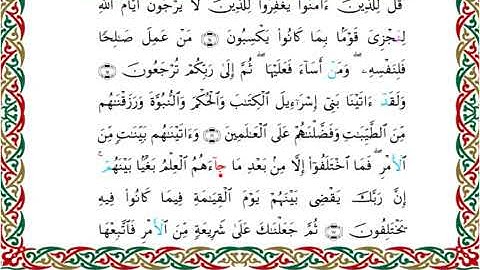 قُل لِّلَّذِينَ ءَامَنُوا۟ يَغْفِرُوا۟ لِلَّذِينَ لَا يَرْجُونَ أَيَّامَ ٱللَّهِ
لِيَجْزِىَ قَوْمًۢا بِمَا كَانُوا۟ يَكْسِبُونَ ۝ مَنْ عَمِلَ صَـٰلِحًا
فَلِنَفْسِهِۦ ۖ وَمَنْ أَسَآءَ فَعَلَيْهَا ۖ ثُمَّ إِلَىٰ رَبِّكُمْ تُرْجَعُونَ ۝
وَلَقَدْ ءَاتَيْنَا بَنِىٓ إِسْرَٰٓءِيلَ ٱلْكِتَـٰبَ وَٱلْحُكْمَ وَٱلنُّبُوَّةَ وَرَزَقْنَـٰهُم
مِّنَ ٱلطَّيِّبَـٰتِ وَفَضَّلْنَـٰهُمْ عَلَى ٱلْعَـٰلَمِينَ ۝ وَءَاتَيْنَـٰهُم بَيِّنَـٰتٍ مِّنَ
ٱلْأَمْرِ ۖ فَمَا ٱخْتَلَفُوٓا۟ إِلَّا مِنۢ بَعْدِ مَا جَآءَهُمُ ٱلْعِلْمُ بَغْيًۢا بَيْنَهُمْ ۚ
إِنَّ رَبَّكَ يَقْضِى بَيْنَهُمْ يَوْمَ ٱلْقِيَـٰمَةِ فِيمَا كَانُوا۟ فِيهِ
يَخْتَلِفُونَ ۝ ثُمَّ جَعَلْنَـٰكَ عَلَىٰ شَرِيعَةٍ مِّنَ ٱلْأَمْرِ فَٱتَّبِعْهَا